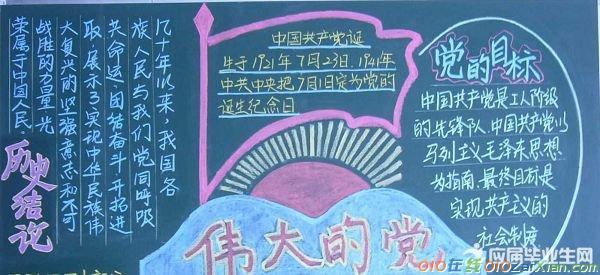 历史结论
几十年以来,我国各
族人民与我们党同呼吸
共命运,团结奋斗,开拓进
取,展示了实现中华民族伟
大复兴的坚强意志和不可
战胜的力量,光
荣属于中国人民,
中国共产党诞
生于1921年7月23日.1941年
中共中央把7月1日定为党的
诞生纪念日
伟大的党
党的目标
中国共产党是工人阶级
的先锋队.中国共产党以
马列主义毛泽东思想
为指南,最终目标是
实现共产主义的
社会制度
应届毕业生网
010在线 010Zaixian.com